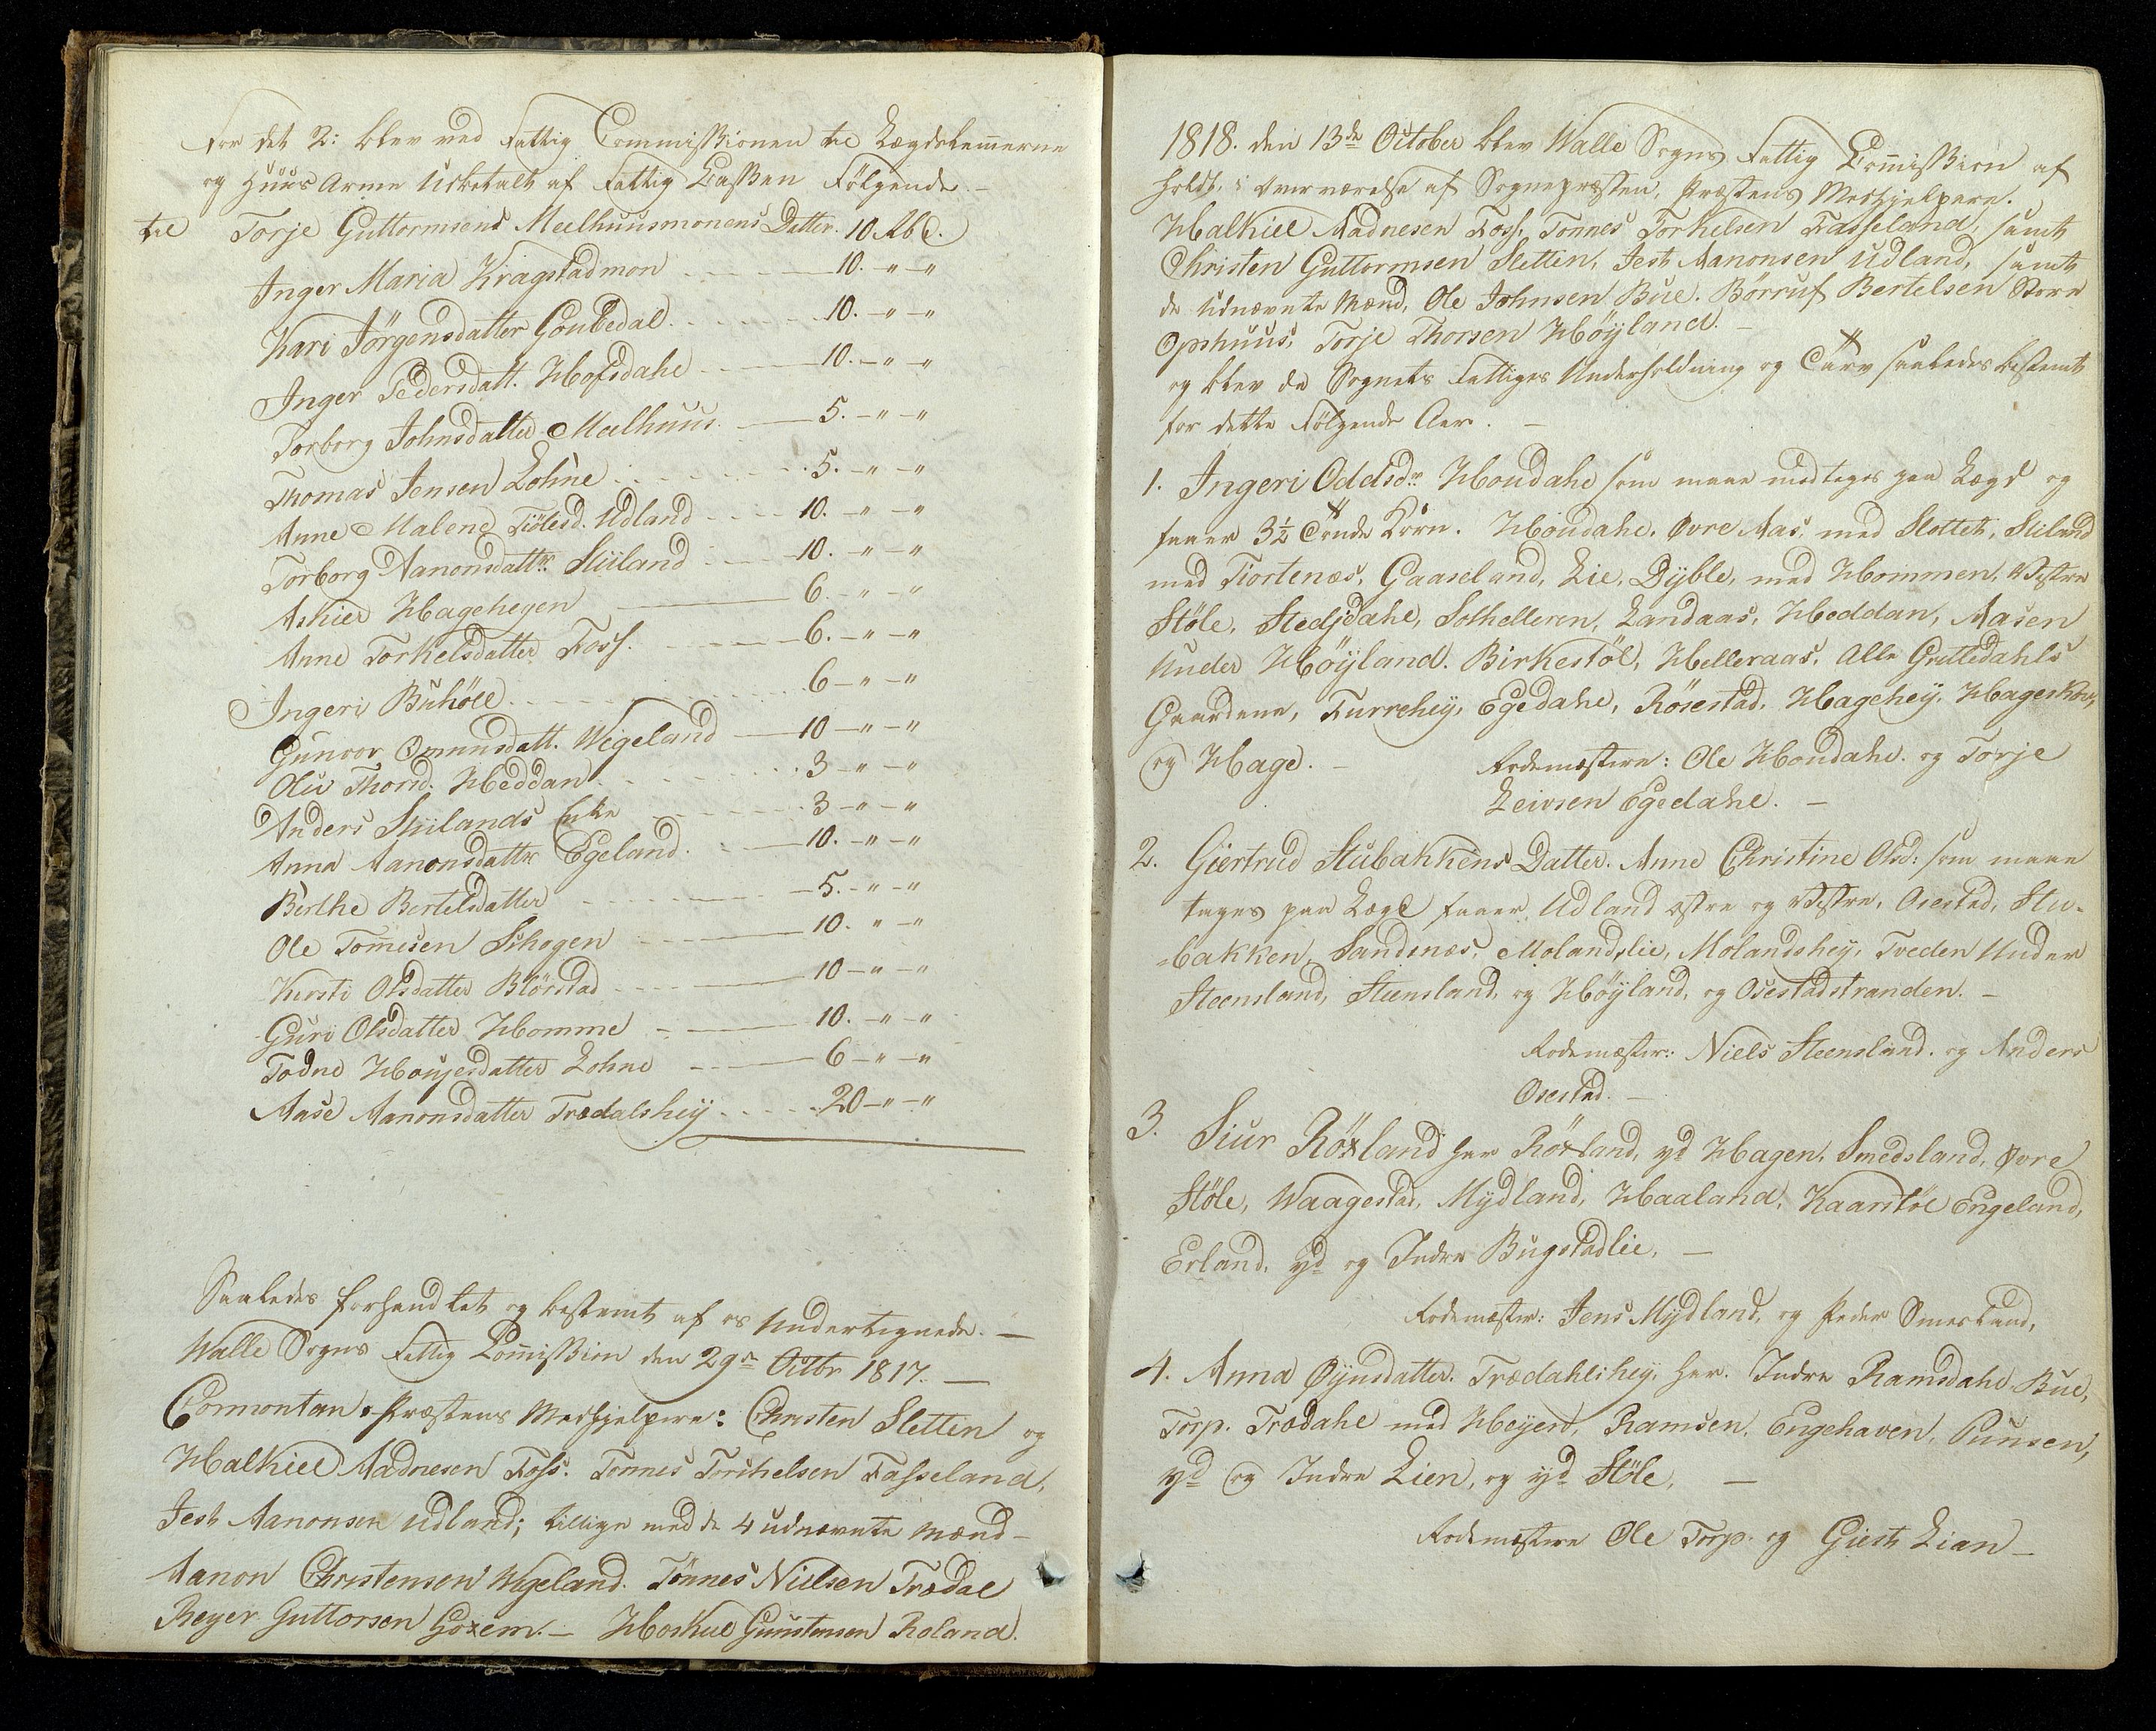 For det 2: blev ved Fattig Commissionen til Lægdslemerne
og Huus Arme Udbetalt af Fattig Cassen Følgende.-
til Torje Guttormsens Meelhuusmonens Datter. 10 Rbd.
Inger Maria Kragstadmon 10.-"-"
Kari Jørgensdatter Goubedal 10.-"-"
Inger Pedersdatt. Hofsdahl 10.-"-"
Torborg Johnsdatter Meelhuus 5.-"-"
Thomas Jensen Lohne 5.-"-"
Anne Malene Tiölesd. Udland 10.-"-"
Torborg Aanonsdattr. Skiland 10.-"-"
Askier Hageheyen 6.-"-"
Anne Torkelsdatter Foss. 6.-"-"
Ingeri Buhöll 6-"-"
Gunvor Omunsdatt. Wigeland 10-"-"
Oliv Thorsd. Heddan 3-"-"
Anders Skilands Enke 3-"-"
Anna Aanonsdatter Egeland 10.-"-"
Berthe Bertelsdatter 5.-"-"
Ole Tomesen Skogen 10.-"-"
Kirsti Olsdatter Blörstad 10-"-"
Guri Olsdatter Homme 10.-"-"
Todne Houyesdatter Lohne 6-"-"
Aase Aanonsdatter Trædalshey 20-"-"
Saaledes forhandlet og bestemt af os Undertegnede.-
Walle Sogns Fattig Comission den 29de Octbr 1817.-
Cormontan. Præstens Medhjelpere: Christen Slettin og
Halkiel Aadnesen Foss. Tønnes Torchelsen Fasseland,
Jest Aanonsen Udland; tillige med de 4 udnævnte Mænd-
Aanon Christensen Wigeland. Tønnes Nielsen Trædal
Reyer Guttorsen Goxem.- Hoskul Gunstensen Roland.
1818. den 13de October blev Walle Sogns Fattig Comission af
holdt, i Overværelse af Sognepræsten, Præstens Medhjelpere.
Halkiel Aadnesen Foss, Tonnes Torkelsen Fasseland, samt
Christen Guttormsen Slettin, Jest Aanonsen Udland, samt
de Udnævnte Mænd, Ole Johnsen Bue. Börruf Bertelsen Store
Opshuus, Torje Thorsen Höyland.-
og blev de Sognets Fattiges Underholdning og Tarv saaledes bestemt
for dette Følgende Aar.-
1. Ingeri Oddsdr. Houdahl som maae modtages paa Lægd og
faaer 3½ Tönde Korn. Houdahl. Øvre Aas, med Slottet, Skiland
med Tiortenæs, Gaaseland, Lie, Dyble, med Hommen, Westre
Støle, Stedjedahl, Solhelleren, Landaas, Heddan, Aasen
Under Höyland. Birkestöl, Helleraas, Alle Grettedahls
Gaardene, Furrehey, Egedahl, Rösestad, Hagehey,
og Hage.- Rodemestere: Ole Houdahl. og Torje
Leivsen Egedahl.-
2. Giertrud Stubakkens Datter. Anne Christine Olsd: som maae
tages paa Lægd faaer, Udland østre og Westre, Osestad, Stu-
bakken, Sandsnæs, Molandslie, Molandshey, Tveden Under
Steensland, Steensland, og Höyland, og Osestadstranden.-
Rodemester: Niels Steensland. og Anders
Osestad.-
3. Siur Röxland har Röxland, yd Hagen. Smedsland, Øvre
Støle, Waagestad, Mydland, Haaland, Kaarstöl Engeland,
Erland, yd og Indre Bugstadlie,-
Rodemester: Jens Mydland, og Peder Smesland,
4. Anna Øynsdatter. Trædahlshey, har. Indre Ramsdahl Bue,
Torp. Trædahl med Heyerd, Ramsen, Engehaven, Punsen,
yd og Indre Lien, og yd Støle,-
Rodemestere Ole Torp. og Giest Lian-